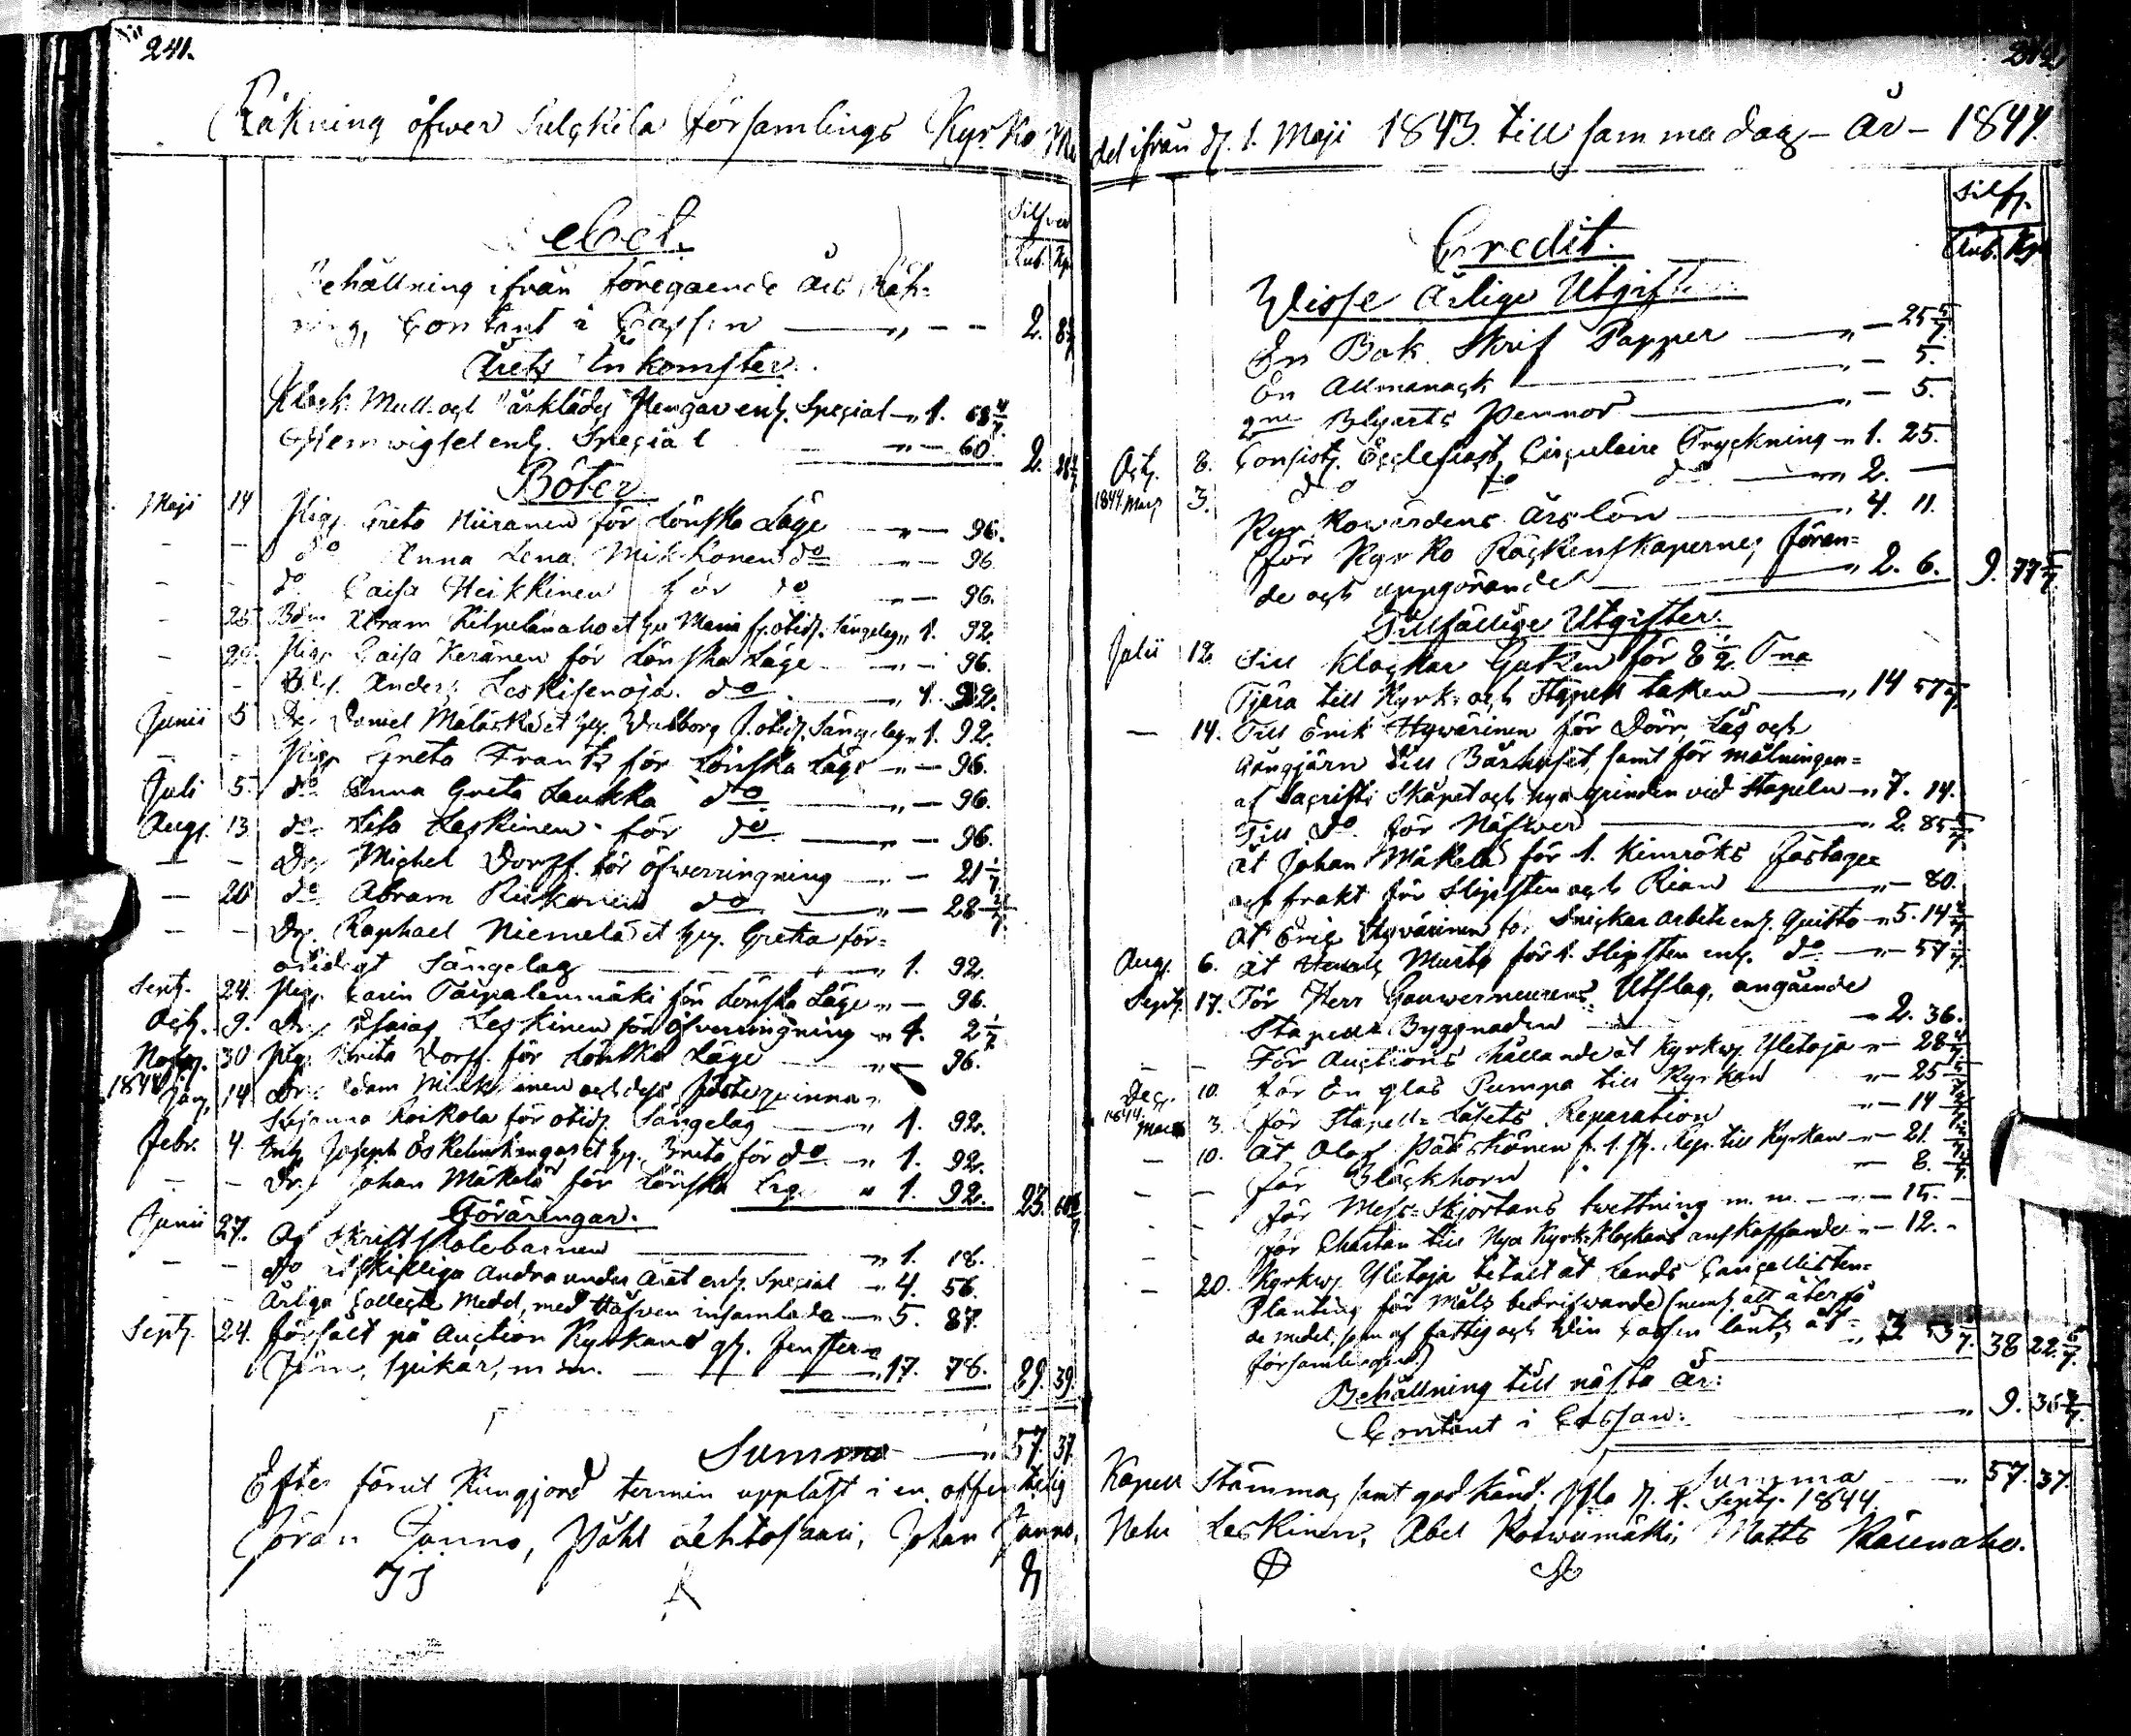 241.
Räkning öfwer Sulckila Församlings Kyrko Me
Silfver
Rub. Kp.
Debet.
Behållning ifrån föregaende års Räk=
ning, Contant i Cassan — " — 2. 8
Årets Inkomster.
Klock Mull och Bårklädes Pengar enl. Special — " 1. 68 4/7.
Hemvigsel enl. Special — " — 60. 2. 28 4/7
Böter
Maji 14 Pig. Greta Hiiranen för Lönska Läge — " — 96.
- - do Anna Lena Mikkonen do — " — 96.
- - do Caisa Heikkinen för do — " — 96.
- 25 Bdn Abram Kilpelänaho et hu Maria f. otid. Sängelag " 1. 92.
- 29. Pig. Caisa Keränen för Lönska Läge — " — 96.
- - Anders Leskisenoja do — " 1. 92.
Junii 5 Dr. Daniel Mälaskä et hu. Walborg f. otid. Sängelag " 1. 92.
- - Pig. Greta Frantz för Lönska Läge — " — 96.
Juli 5. do Anna Greta Laukka do — " — 96.
Aug. 13 do Lisa Leskinen för do — " — 96.
— - Dr. Michel Dorff. för öfverringning — " — 21 1/7
— 20 do Abram Riikonen do — " — 28 4/7
— - Dr. Raphael Niemelä et hu. Greta för=
otidigt Sängelag — " 1. 92.
Sept. 24. Pig. Carin Taipalenmäki för Lönska Läge " — 96.
Oct. 9. Dr. Esaias Leskinen för öfverringning " 4. 2 1/7
Nov. 30 Pig. Brita Dorff. för Lönska Läge — " — 96.
1844 Jan. 14 Dr. Adam Mikkonen och dess fästeqvinna
Susanna Koikola för otid. Sängelag — " 1. 92.
Febr. 4. Inh. Joseph Eskelinkangas et hu. Brita för do — " 1. 92.
- - Dr. Johan Mäkelä för Lönska Läge " 1. 92. 23.
Föräringar.
Junii 27. Af Skriftskolebarnen — " 1. 18.
- - do åtskilliga Andra under Året enl. Special — " 4. 56.
- - Årliga Collecte Medel, med Håfven insamlade — " 5. 87.
Sept. 24. försålt på Auction Kyrkans gl. Fenster=
Jern, Spikar, m. m. — " 17. 78. 29. 39.
Summa — " 57. 37.
Efter förut Kungjord termin uppläst i en offentelig
Jöran Junno, Påhl Lehtosaari, Johan Junno,
JJ
242
del ifrån d. 1. Maji 1843. till samma dag – År – 1844.
Silf.
Rub. Kp.
Credit.
Wisse Årlige Utgifter:
En Bok Skrif Papper — " — 25 5/7.
En Allmanack — " — 5.
Blyerts Pennor — " — 5.
Oct. 8. Consist. Ecclesiast. Circulaire Tryckning — " 1. 25.
1844 Mars 3. do do do — " 2. —
Kyrkovärdens Årslön — " 4. 11.
För Kyrko Räckenskapernes föran=
de och uppgörande — " 2. 6. 9. 77 5/7.
Tillfällige Utgifter.
Julii 12. Till Klockar Gutzen för 8 1/2 Tna
Tjära till Kyrk- och Stapell taken — " 14 57 1/7.
— 14. Till Erik Hyvärinen för Dörr, Lås och
Gångjärn till Bårhuset, samt för målningen=
af Sacristi Skåpet och nya grinden vid Stapeln — " 7. 14.
Till do för Näfwer — " 2. 85 5/7.
åt Johan Mäkelä för 1. Kimröks fastage
och frakt för Slipsten och Rian — " — 80.
åt Eric Hyvärinen för Snickar arbete enl. Quitto — " 5. 14 2/7
Aug. 6. åt Henric Murto för 1. Slipsten enl. do — " — 57 1/7.
Sept. 17. För Herr Gouverneurens Utslag, angående
Stapell Byggnaden — " 2. 36.
- - För Auctions hållande åt Kyrkv. Yletoja — " — 28 4/7
Dec. 10. för En glas Pumpa till Kyrkan — " — 25 5/7
1844 Mars 3. för Stapell-Låsets Reparation — " — 14
— 10. åt Olof Pääskönen f. 1. St. till Kyrkan — " — 21.
- - för Bläckhorn — " — 8.
- - för Mess-Skjortans twettning m. m. — " — 15.
- - för Chartan till Nya Kyrk-Klockans anskaffande — " — 12.
- 20. Kyrkv. Yletoja betalt åt Lands Cancellisten
Planting för Måls bedrifwande (neml. att återfå
de medel, som af fattig och Win Cassan lånts åt
församlingen.) — " 3 53 1/7. 38 22. 6/7.
Behållning till nästa år:
Contant i Cassan: — " 9. 36 3/7.
Summa — " 57. 37.
Kapell Stämma, samt godkänd. d. 1. Sept. 1844.
Nels Leskinen, Abel Koswamäki, Matts Käienaho.